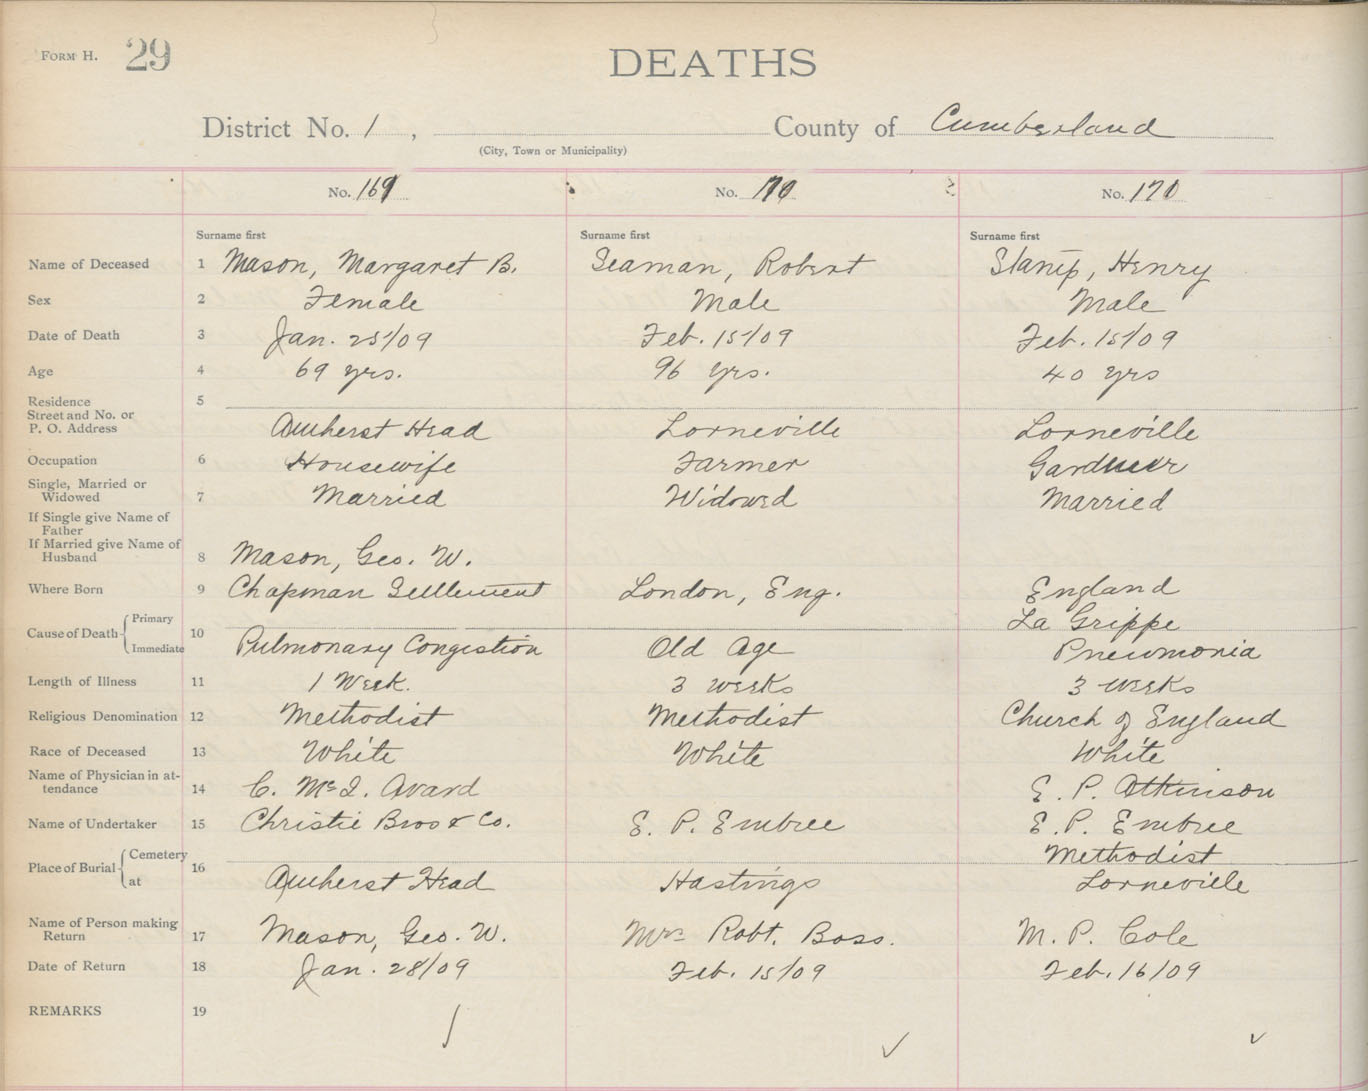 FORM H. 29
DEATHS
District No. 1, County of Cumberland
(City, Town or Municipality)
No. 169 No. 170 No. 171
Surname first Surname first Surname first
Name of Deceased 1 Mason, Margaret B. Seaman, Robert Stamp, Henry
Sex 2 Female Male Male
Date of Death 3 Jan. 25/09 Feb. 15/09 Feb. 15/09
Age 4 69 yrs. 96 yrs. 40 yrs
Residence 5
Street and No. or
P. O. Address Amherst Head Lorneville Lorneville
Occupation 6 Housewife Farmer Gardner
Single, Married or
Widowed 7 Married Widowed Married
If Single give Name of
Father
If Married give Name of
Husband 8 Mason, Geo. W.
Where Born 9 Chapman Settlement London, Eng. England
Cause of Death Primary La Grippe
10 Immediate Pulmonary Congestion Old Age Pneumonia
Length of Illness 11 1 Week. 3 weeks 3 weeks
Religious Denomination 12 Methodist Methodist Church of England
Race of Deceased 13 White White White
Name of Physician in at-
tendance 14 C. McQ. Avard E. P. Atkinson
Name of Undertaker 15 Christie Bros & Co. E. P. Embree E. P. Embree
Place of Burial Cemetery Methodist
16 at Amherst Head Hastings Lorneville
Name of Person making
Return 17 Mason, Geo. W. Mrs Robt. Boss. M. P. Cole
Date of Return 18 Jan. 28/09 Feb. 15/09 Feb. 16/09
REMARKS 19